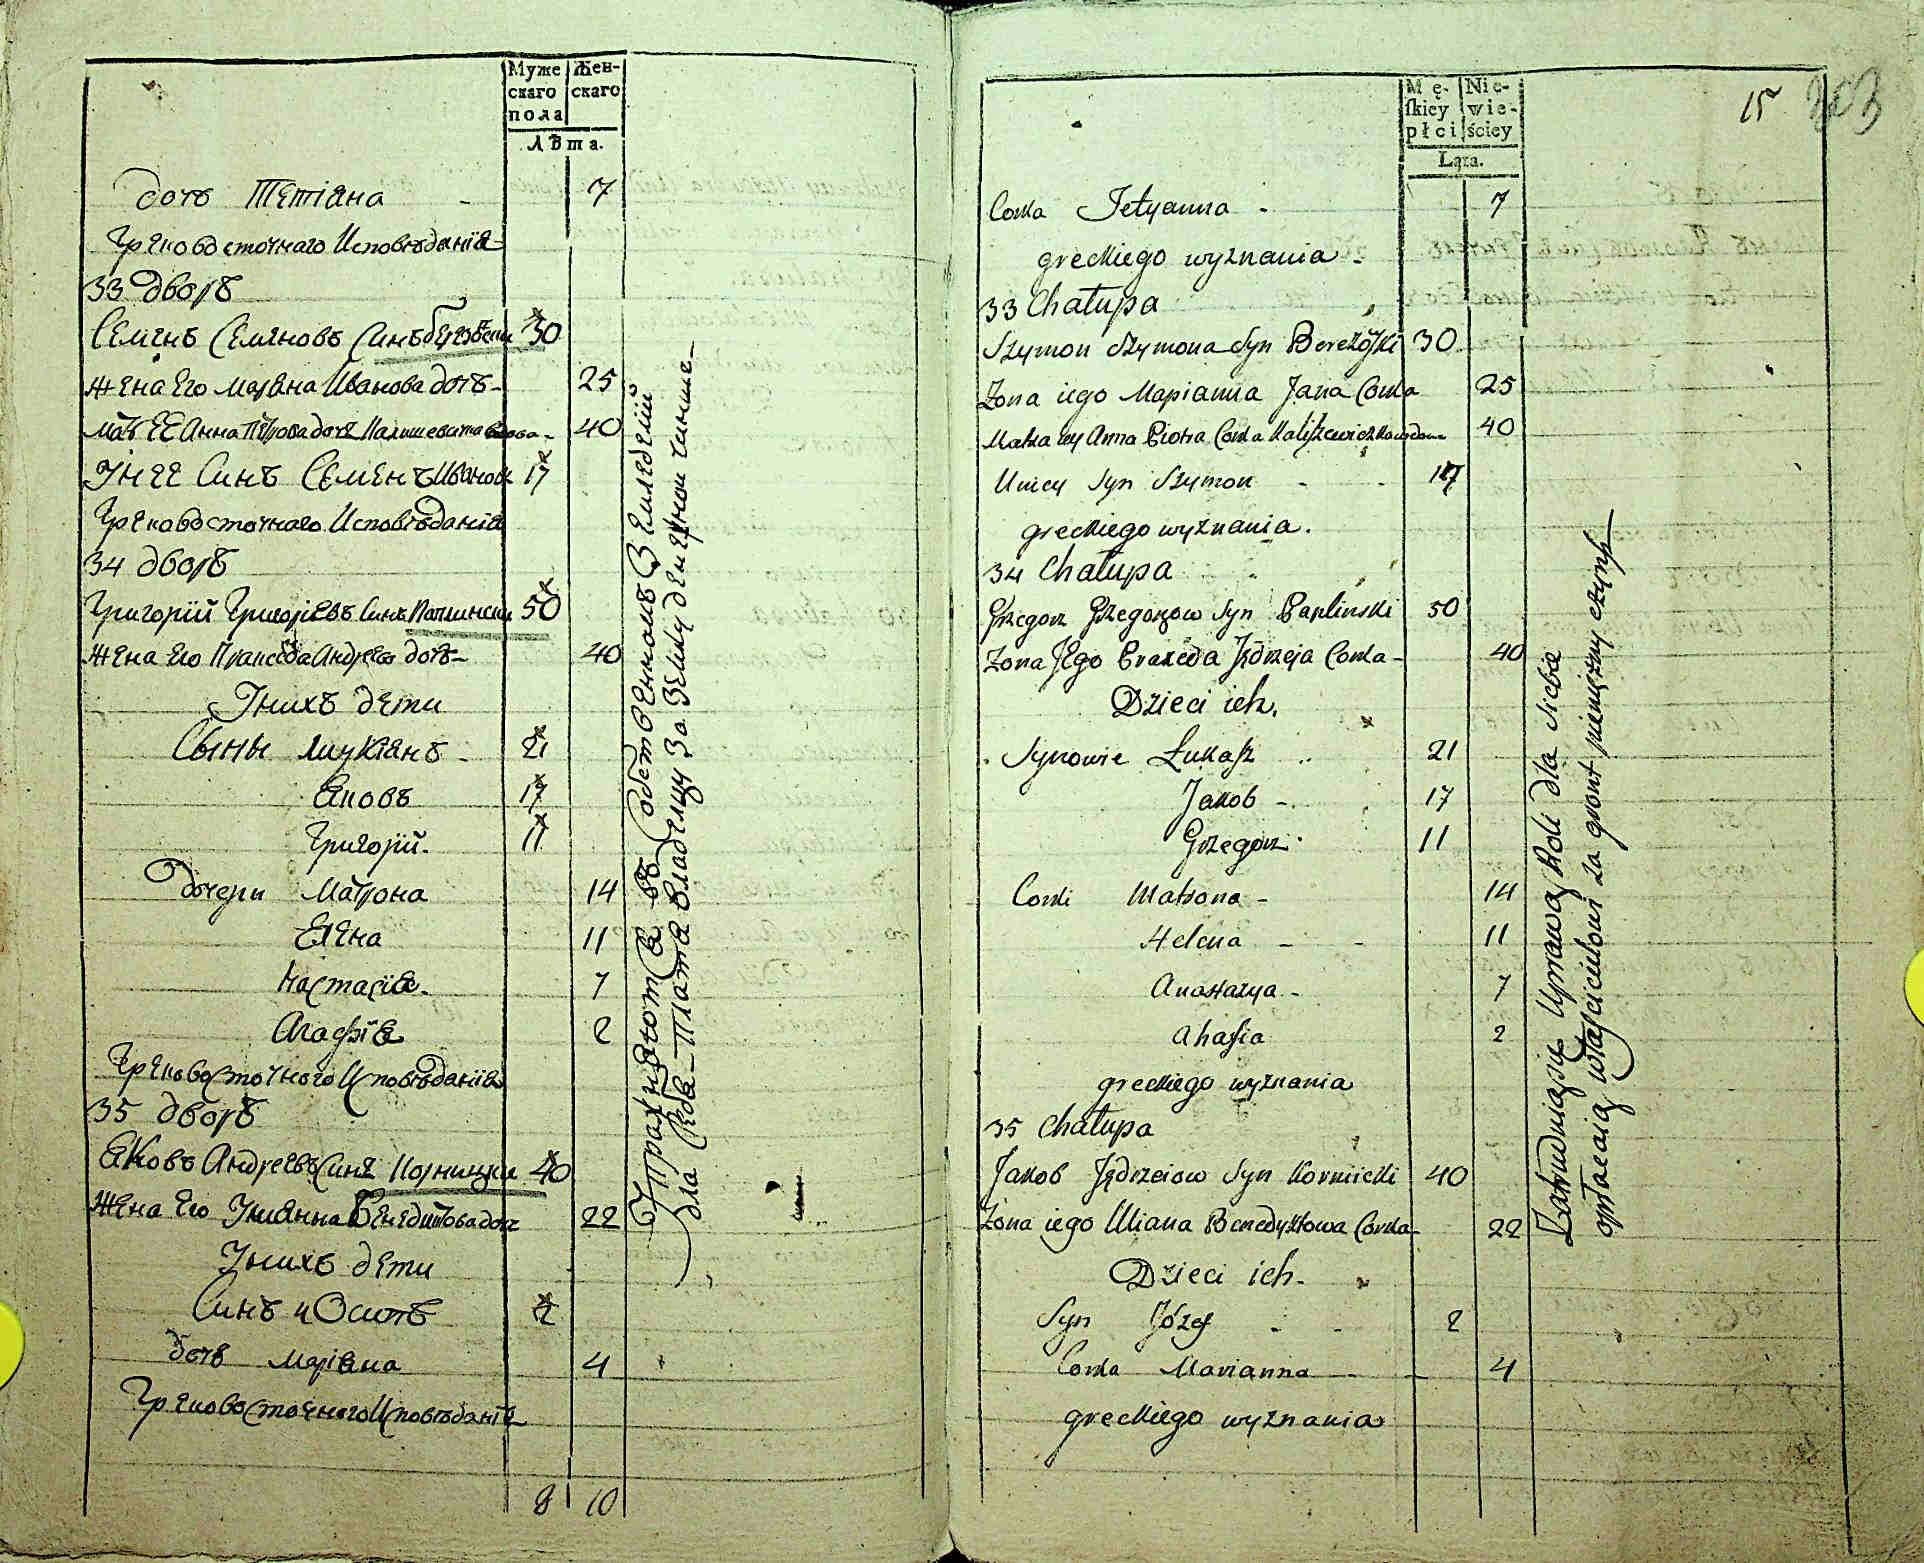 Муже Жен-
скаго скаго
пола
Лѣта.
дочь Тетіяна - 7
Грековосточнаго Исповѣданія
33 дворъ
Семенъ Семеновъ Синъ 30
жена Его Маряна Иванова дочь - 25
Мать ЕЕ Анна Петрова дочь вдова - 40
Унее Синъ Семенъ Иванов 17
Грековосточнаго Исповѣданія
34 дворъ
Григорій Григоріевъ Синъ Паплински 50
жена Его Пракседа Андреева дочь - 40
Унихъ дети
Сыны Лукіянъ - 21
Яковъ 17
Григорій - 11
Дочери Матрона 14
Елена 11
Настасія - 7
Агафія 2
Грековосточного Исповѣданія
35 дворъ
Яковъ Андреевъ Синъ Корницки 40
Жена Его Улиянна Бенедиктова дочь 22
Унихъ дети
Синъ Осипъ 2
дочь Маріяна 4
Грековосточного Исповѣданія
8 10
Упражняютъся въ собственномъ Земледелій
для себя - платя владелцу за Землю денежной чинше -
15 203
Mę- Nie-
ſkiey wie-
płci ściey
Lata.
Corka Tetyanna - 7
greckiego wyznania -
33 Chałupa
Szymon Szymona Syn Berezoſki 30
Zona iego Marianna Jana Corka 25
Matka iey Anna Piotra Corka Kaliſzewiczkowa wdowa 40
U niey Syn Szymon - - 17
greckiego wyznania.
34 Chałupa
Grzegorz Grzegorzow Syn Paplinski 50
Zona Jego Praxeda Jędrzeja Corka - 40
Dzieci ich.
Synowie Łukaſz 21
Jakob - 17
Grzegorz 11
Corki Matrona - 14
Helena - - 11
Anastazya - 7
Ahafia 2
greckiego wyznania
35 Chałupa
Jakob Jędrzeiow Syn Kornicki 40
Zona iego Uliana Benedyktowa Corka - 22
Dzieci ich -
Syn Józef - - 2
Corka Marianna - - 4
greckiego wyznania
Zatrudniaią się Uprawą Roli dla siebie
opłacaią właścicielowi za gront pieniężny czynſz